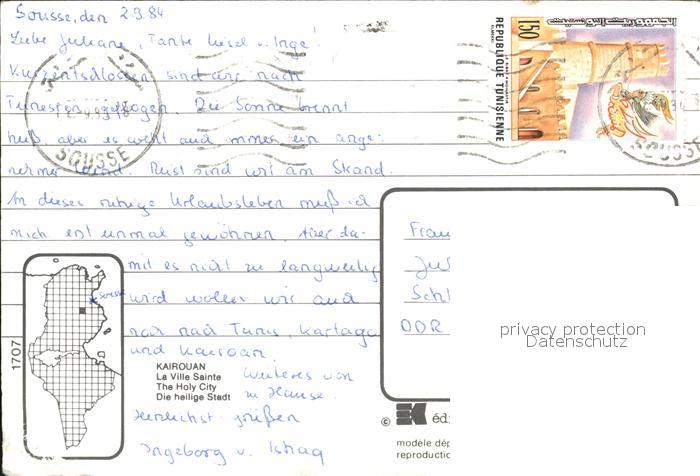 Sousse, den 2.9.84
Liebe Juliane, Tante Liesel u. Inge!
Kurzentschlossen sind wir nach
Tunesien geflogen. Die Sonne brennt
heiß aber es weht auch immer ein ange-
nehmer Wind. Meist sind wir am Strand.
An dieses ruhige Urlaubsleben muß ich
mich erst einmal gewöhnen. Aber da-
mit es nicht zu langweilig
wird wollen wir auch
noch nach Tunis, Kartago
und Kairoan.
Weiteres von
zu Hause.
Herzlichst grüßen
Ingeborg u.
Sousse
1707
KAIROUAN
La Ville Sainte
The Holy City
Die heilige Stadt
150
REPUBLIQUE TUNISIENNE
الجمهورية التونسية
SOUSSE
SOUSSE
Frau
Schl
DDR
privacy protection
Datenschutz
© K édi
modèle dép
reproductio